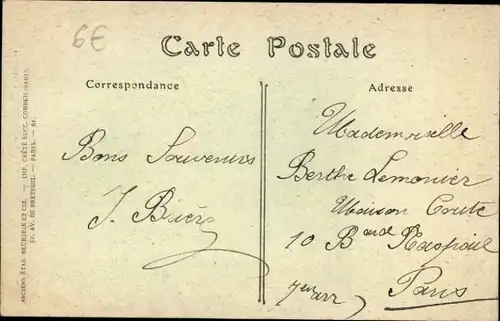 6E
Carte Postale
Correspondance
Adresse
Bons Souvenirs
Mademoiselle
Berthe Lemonier
Maison
10 Bard Raspail
Paris
7em arr
ANCIENS ÉTAB. NEURDEIN ET CIE. — IMP. CRÉTÉ SUCC. CORBEIL-PARIS.
52, AV. DE BRETEUIL. — PARIS. —